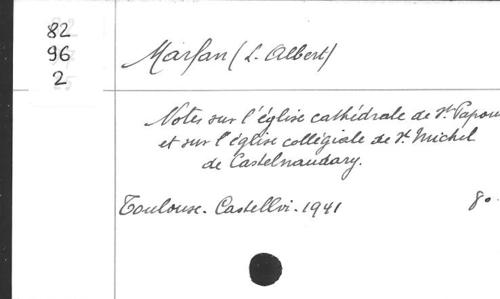 82
96
2
Marfan (L. Albert)
Notes sur l'église cathédrale de St. Papou
et sur l'église collégiale de St. Michel
de Castelnaudary.
Toulouse. Castellvi. 1941 80.